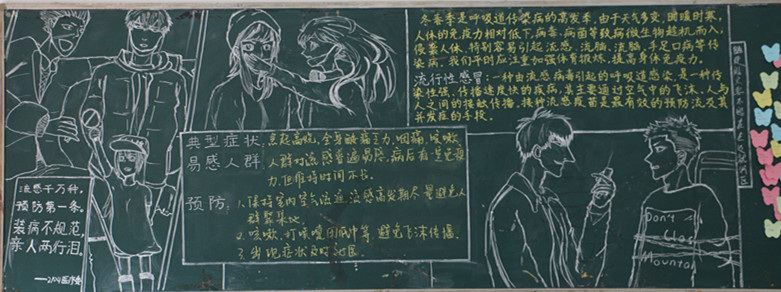 冬春季是呼吸道传染病的高发季,由于天气多变,国暖时寒,
人体的免疫力相对低下,病毒、病菌等致病微生物趁机而入,
侵袭人体,特别容易引起流感、流脑、流脑、手足口病等传
染病。我们平时应注重加强体育锻炼,提高身体免疫力。
流行性感冒:一种由流感病毒引起的呼吸道感染,是一种传
染性强、传播速度快的疾病,其主要通过空气中的飞沫、人与
人之间的接触传播,接种流感疫苗是最有效的预防流及其
并发症的手段。
典型症状:急起高热、全身酸痛乏力、咽痛、咳嗽
易感人群:人群对流感普遍易感,病后有一定免疫
力,但维持时间不长。
预防:1.保持室内空气流通,流感高发期尽量避免人
群聚集地。
2.咳嗽、打喷嚏用纸巾等,避免飞沫传播。
3.出现症状及时
流感千万种,
预防第一条。
装病不规范,
亲人两行泪。
Don't
Clos
Mountai